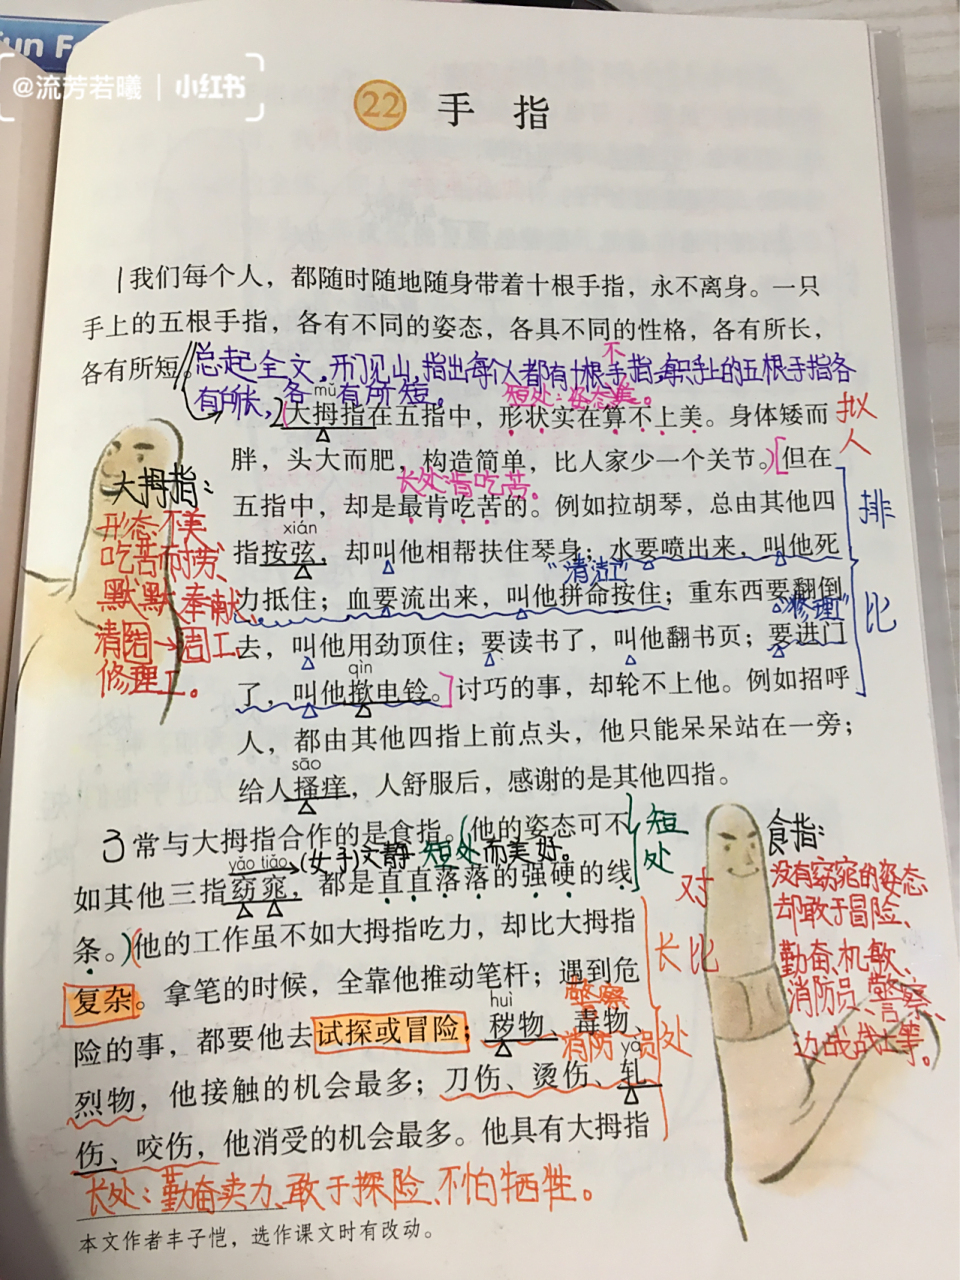 un F
@流芳若曦 | 小红书
22 手 指
1我们每个人，都随时随地随身带着十根手指，永不离身。一只
手上的五根手指，各有不同的姿态，各具不同的性格，各有所长，
各有所短。
总起全文，开门见山，指出每个人都有十根手指，每只手上的五根手指各
不
有所长，各有所短。
短处：姿态美。
mǔ
2(大拇指在五指中，形状实在算不上美。身体矮而
拟人
胖，头大而肥，构造简单，比人家少一个关节。)[但在
长处：肯吃苦。
五指中，却是最肯吃苦的。例如拉胡琴，总由其他四
xián
指按弦，却叫他相帮扶住琴身；水要喷出来，叫他死
“清洁工”
力抵住；血要流出来，叫他拼命按住；重东西要翻倒
“修理”
去，叫他用劲顶住；要读书了，叫他翻书页；要进门
qìn
了，叫他揿电铃。]讨巧的事，却轮不上他。例如招呼
排比
人，都由其他四指上前点头，他只能呆呆站在一旁；
sāo
给人搔痒，人舒服后，感谢的是其他四指。
大拇指：
形态不美
吃苦耐劳、
默默奉献、
修理工。
3常与大拇指合作的是食指。(他的姿态可不
短处
yǎo tiǎo
(女子)文静
短处
而美好。
如其他三指窈窕，都是直直落落的强硬的线
条。)(他的工作虽不如大拇指吃力，却比大拇指
复杂。拿笔的时候，全靠他推动笔杆；遇到危
huì
警察
险的事，都要他去试探或冒险；秽物、毒物、
消防员
yà
烈物，他接触的机会最多；刀伤、烫伤、轧
伤、咬伤，他消受的机会最多。他具有大拇指
对比
长处
长处：勤奋卖力、敢于探险、不怕牺牲。
食指：
没有窈窕的姿态
却敢于冒险、
勤奋、机敏、
消防员、警察、
边战战士等。
本文作者丰子恺，选作课文时有改动。